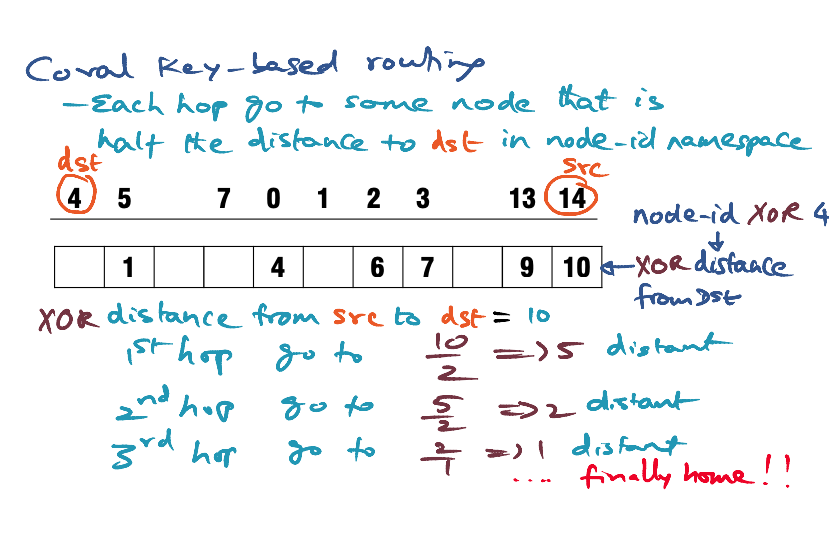 Coral Key-based routing
- Each hop go to some node that is
half the distance to dst in node-id namespace
dst src
4 5 7 0 1 2 3 13 14
node-id XOR 4
1 4 6 7 9 10 ← XOR distance
from DST
XOR distance from src to dst = 10
1st hop go to 10/2 => 5 distant
2nd hop go to 5/2 => 2 distant
3rd hop go to 2/1 => 1 distant
.... finally home!!